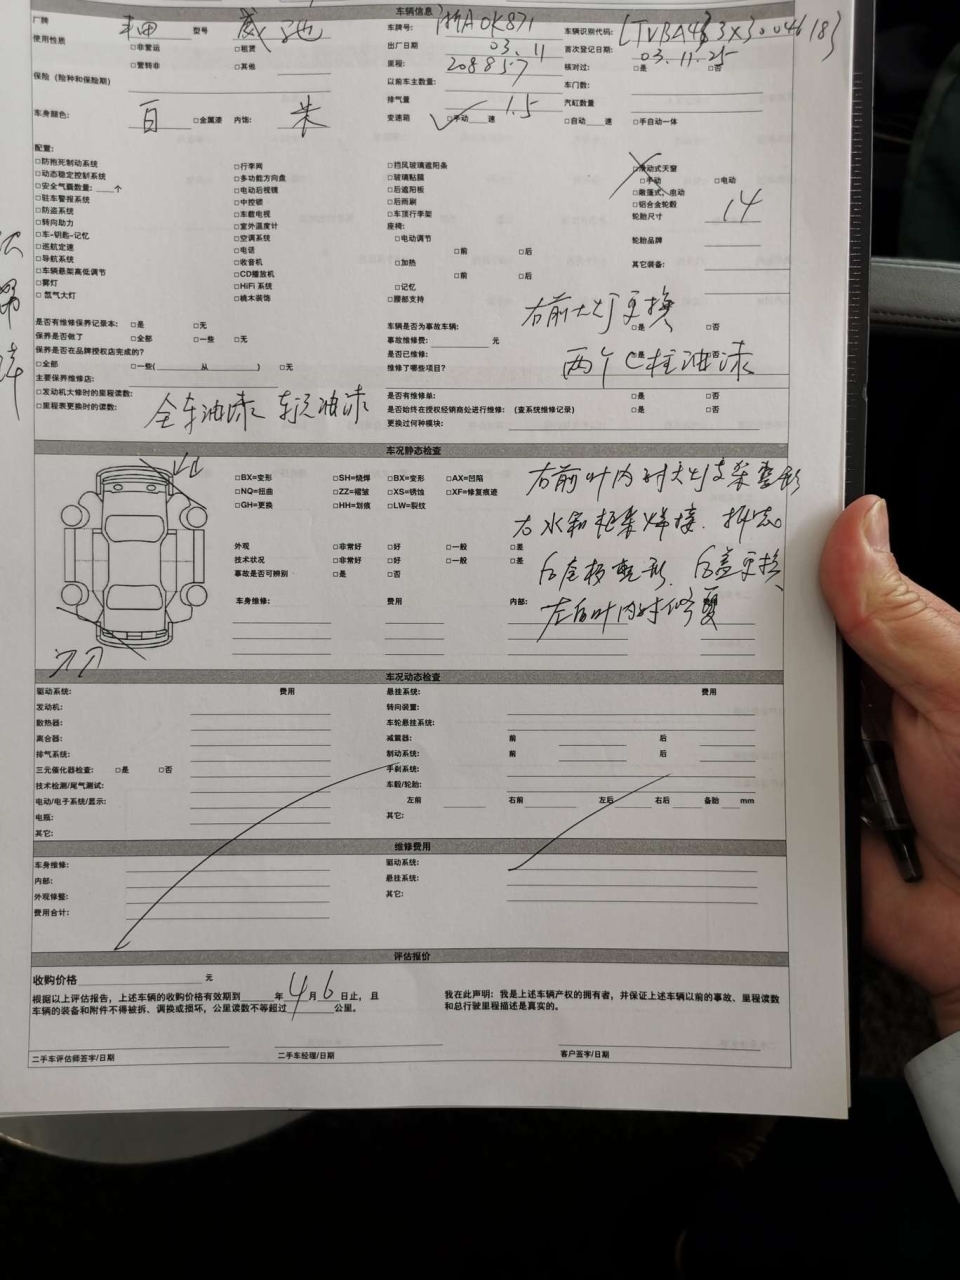 车辆信息
厂牌 丰田 型号 威驰 车牌号: 浙A0K871 车辆识别代码:
使用性质 □非营运 □租赁 出厂日期 03.11 首次登记日期: 03.11.25
□营转非 □其他 里程: 208857 核对过: □是 □否
保险（险种和保险期） 以前车主数量: 车门数:
排气量 1.5 汽缸数量
车身颜色: 白 □金属漆 内饰: 米 变速箱 □手动 速 □自动 速 □手自动一体
配置:
□防抱死制动系统 □行李网 □挡风玻璃遮阳条 □滑动式天窗
□动态稳定控制系统 □多功能方向盘 □玻璃贴膜 □手动 □电动
□安全气囊数量: 个 □电动后视镜 □后遮阳板 □敞篷式，电动
□驻车警报系统 □中控锁 □后雨刷 □铝合金轮毂
□防盗系统 □车载电视 □车顶行李架 轮胎尺寸 14
□转向助力 □室外温度计 座椅:
□车-钥匙-记忆 □空调系统 □电动调节 轮胎品牌
□巡航定速 □电话 □前 □后
□导航系统 □收音机 □加热 其它装备:
□车辆悬架高低调节 □CD播放机 □前 □后
□雾灯 □HiFi 系统 □记忆
□氙气大灯 □桃木装饰 □腰部支持
右前大灯更换
是否有维修保养记录本: □是 □无 车辆是否为事故车辆: □是 □否
保养是否做了 □全部 □一些 □无 事故维修费: 元
保养是否在品牌授权店完成的? 是否已维修: □是 □否
□全部 □一些( 从 ) □无 维修了哪些项目? 两个C柱油漆
主要保养维修店:
□发动机大修时的里程读数: 是否有维修单: □是 □否
□里程表更换时的读数: 全车油漆 车顶油漆 是否始终在授权经销商处进行维修: （查系统维修记录） □是 □否
更换过何种模块:
车况静态检查
□BX=变形 □SH=烧焊 □BX=变形 □AX=凹陷
□NQ=扭曲 □ZZ=褶皱 □XS=锈蚀 □XF=修复痕迹
□GH=更换 □HH=划痕 □LW=裂纹
右前叶内衬大灯支架整形
右水箱框架焊接.
外观 □非常好 □好 □一般 □差
技术状况 □非常好 □好 □一般 □差
事故是否可辨别 □是 □否
后盖更换
车身维修: 费用 内部:
左后叶内衬修复
车况动态检查
驱动系统: 费用 悬挂系统: 费用
发动机: 转向装置:
散热器: 车轮悬挂系统:
离合器: 减震器: 前 后
排气系统: 制动系统: 前 后
三元催化器检查: □是 □否 手刹系统:
技术检测/尾气测试: 车毂/轮胎:
电动/电子系统/显示: 左前 右前 左后 右后 备胎 mm
电瓶: 其它:
其它:
维修费用
车身维修: 驱动系统:
内部: 悬挂系统:
外观修整: 其它:
费用合计:
评估报价
收购价格 元
根据以上评估报告，上述车辆的收购价格有效期到 年 4 月 6 日止，且
车辆的装备和附件不得被拆、调换或损坏，公里读数不等超过 公里。
我在此声明：我是上述车辆产权的拥有者，并保证上述车辆以前的事故、里程读数
和总行驶里程描述是真实的。
二手车评估师签字/日期 二手车经理/日期 客户签字/日期